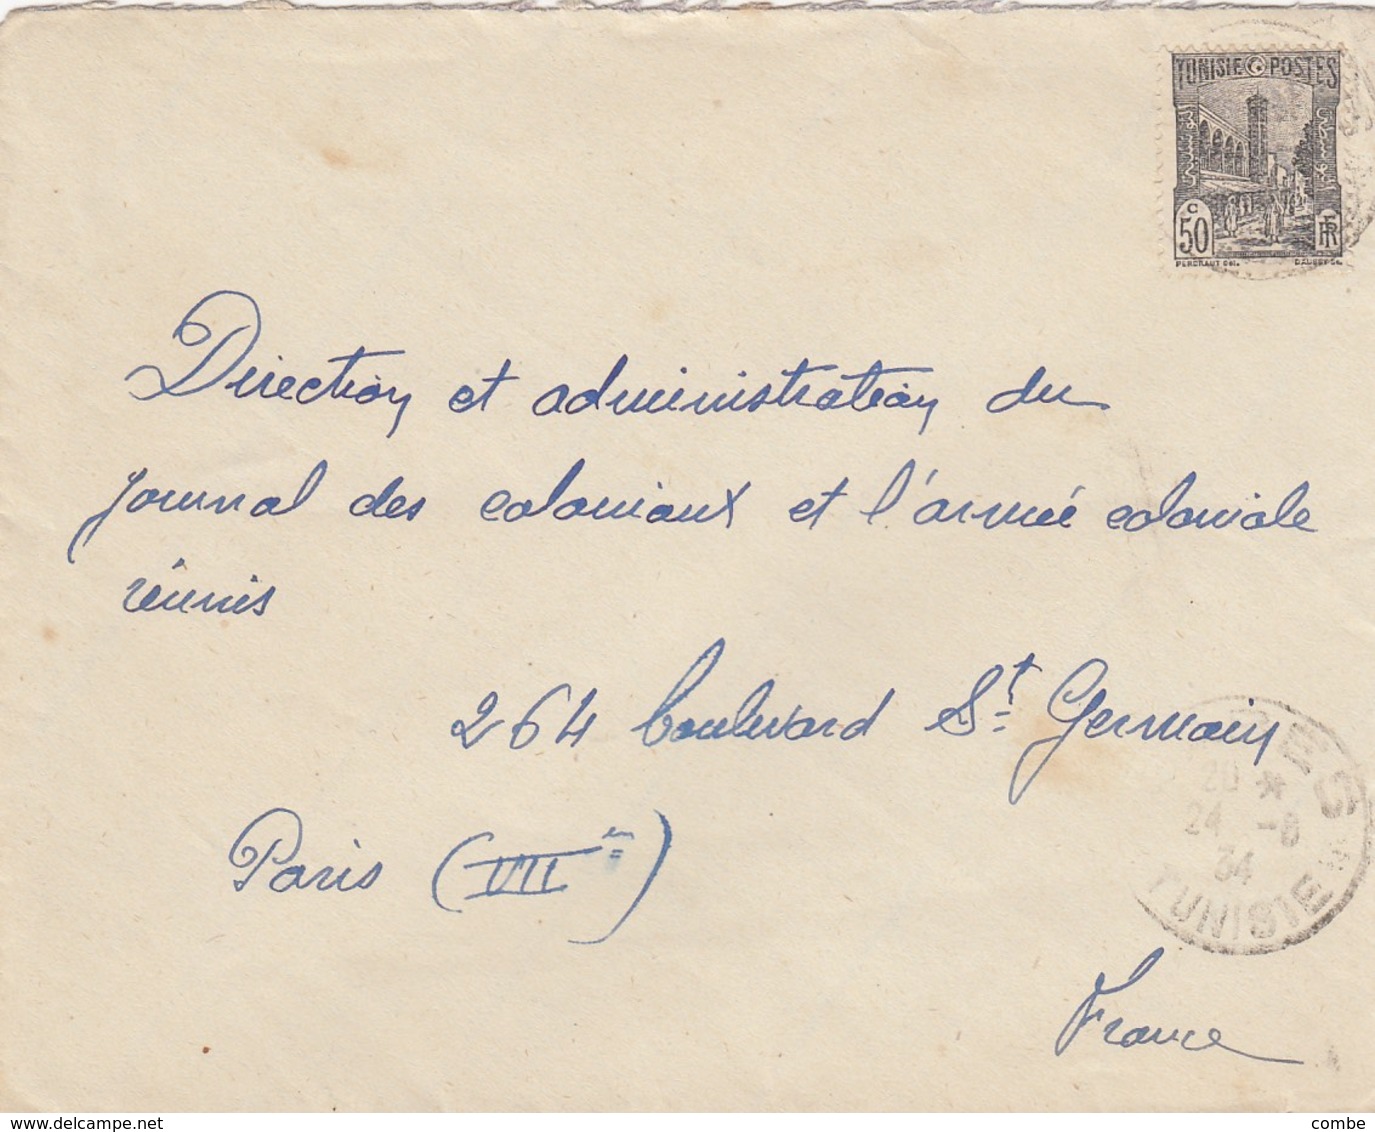 TUNISIE POSTES
C
50
RF
Direction et administration du
journal des coloniaux et l'armée coloniale
réunis
264 boulevard St. Germain
Paris (VIIè)
20 *
24 -8
34
TUNISIE
France
delcampe.net
combe